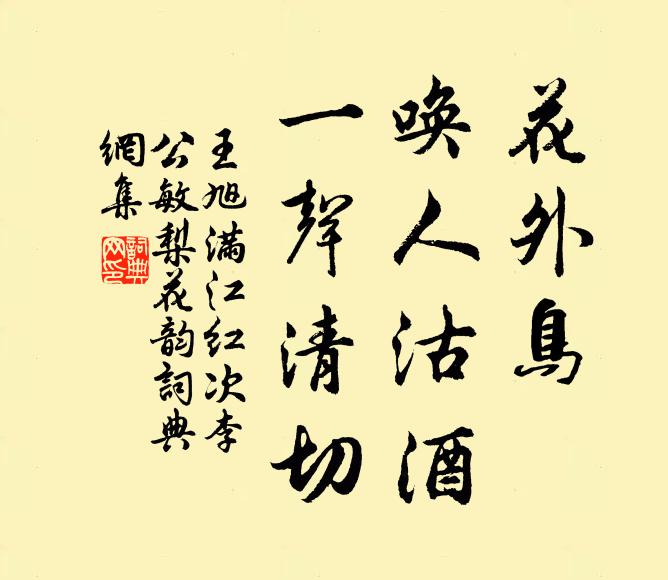 花外鳥
唤人沽酒
一聲清切
王旭滿江红次李
公敏梨花韵詞典
網集
詞典
网印